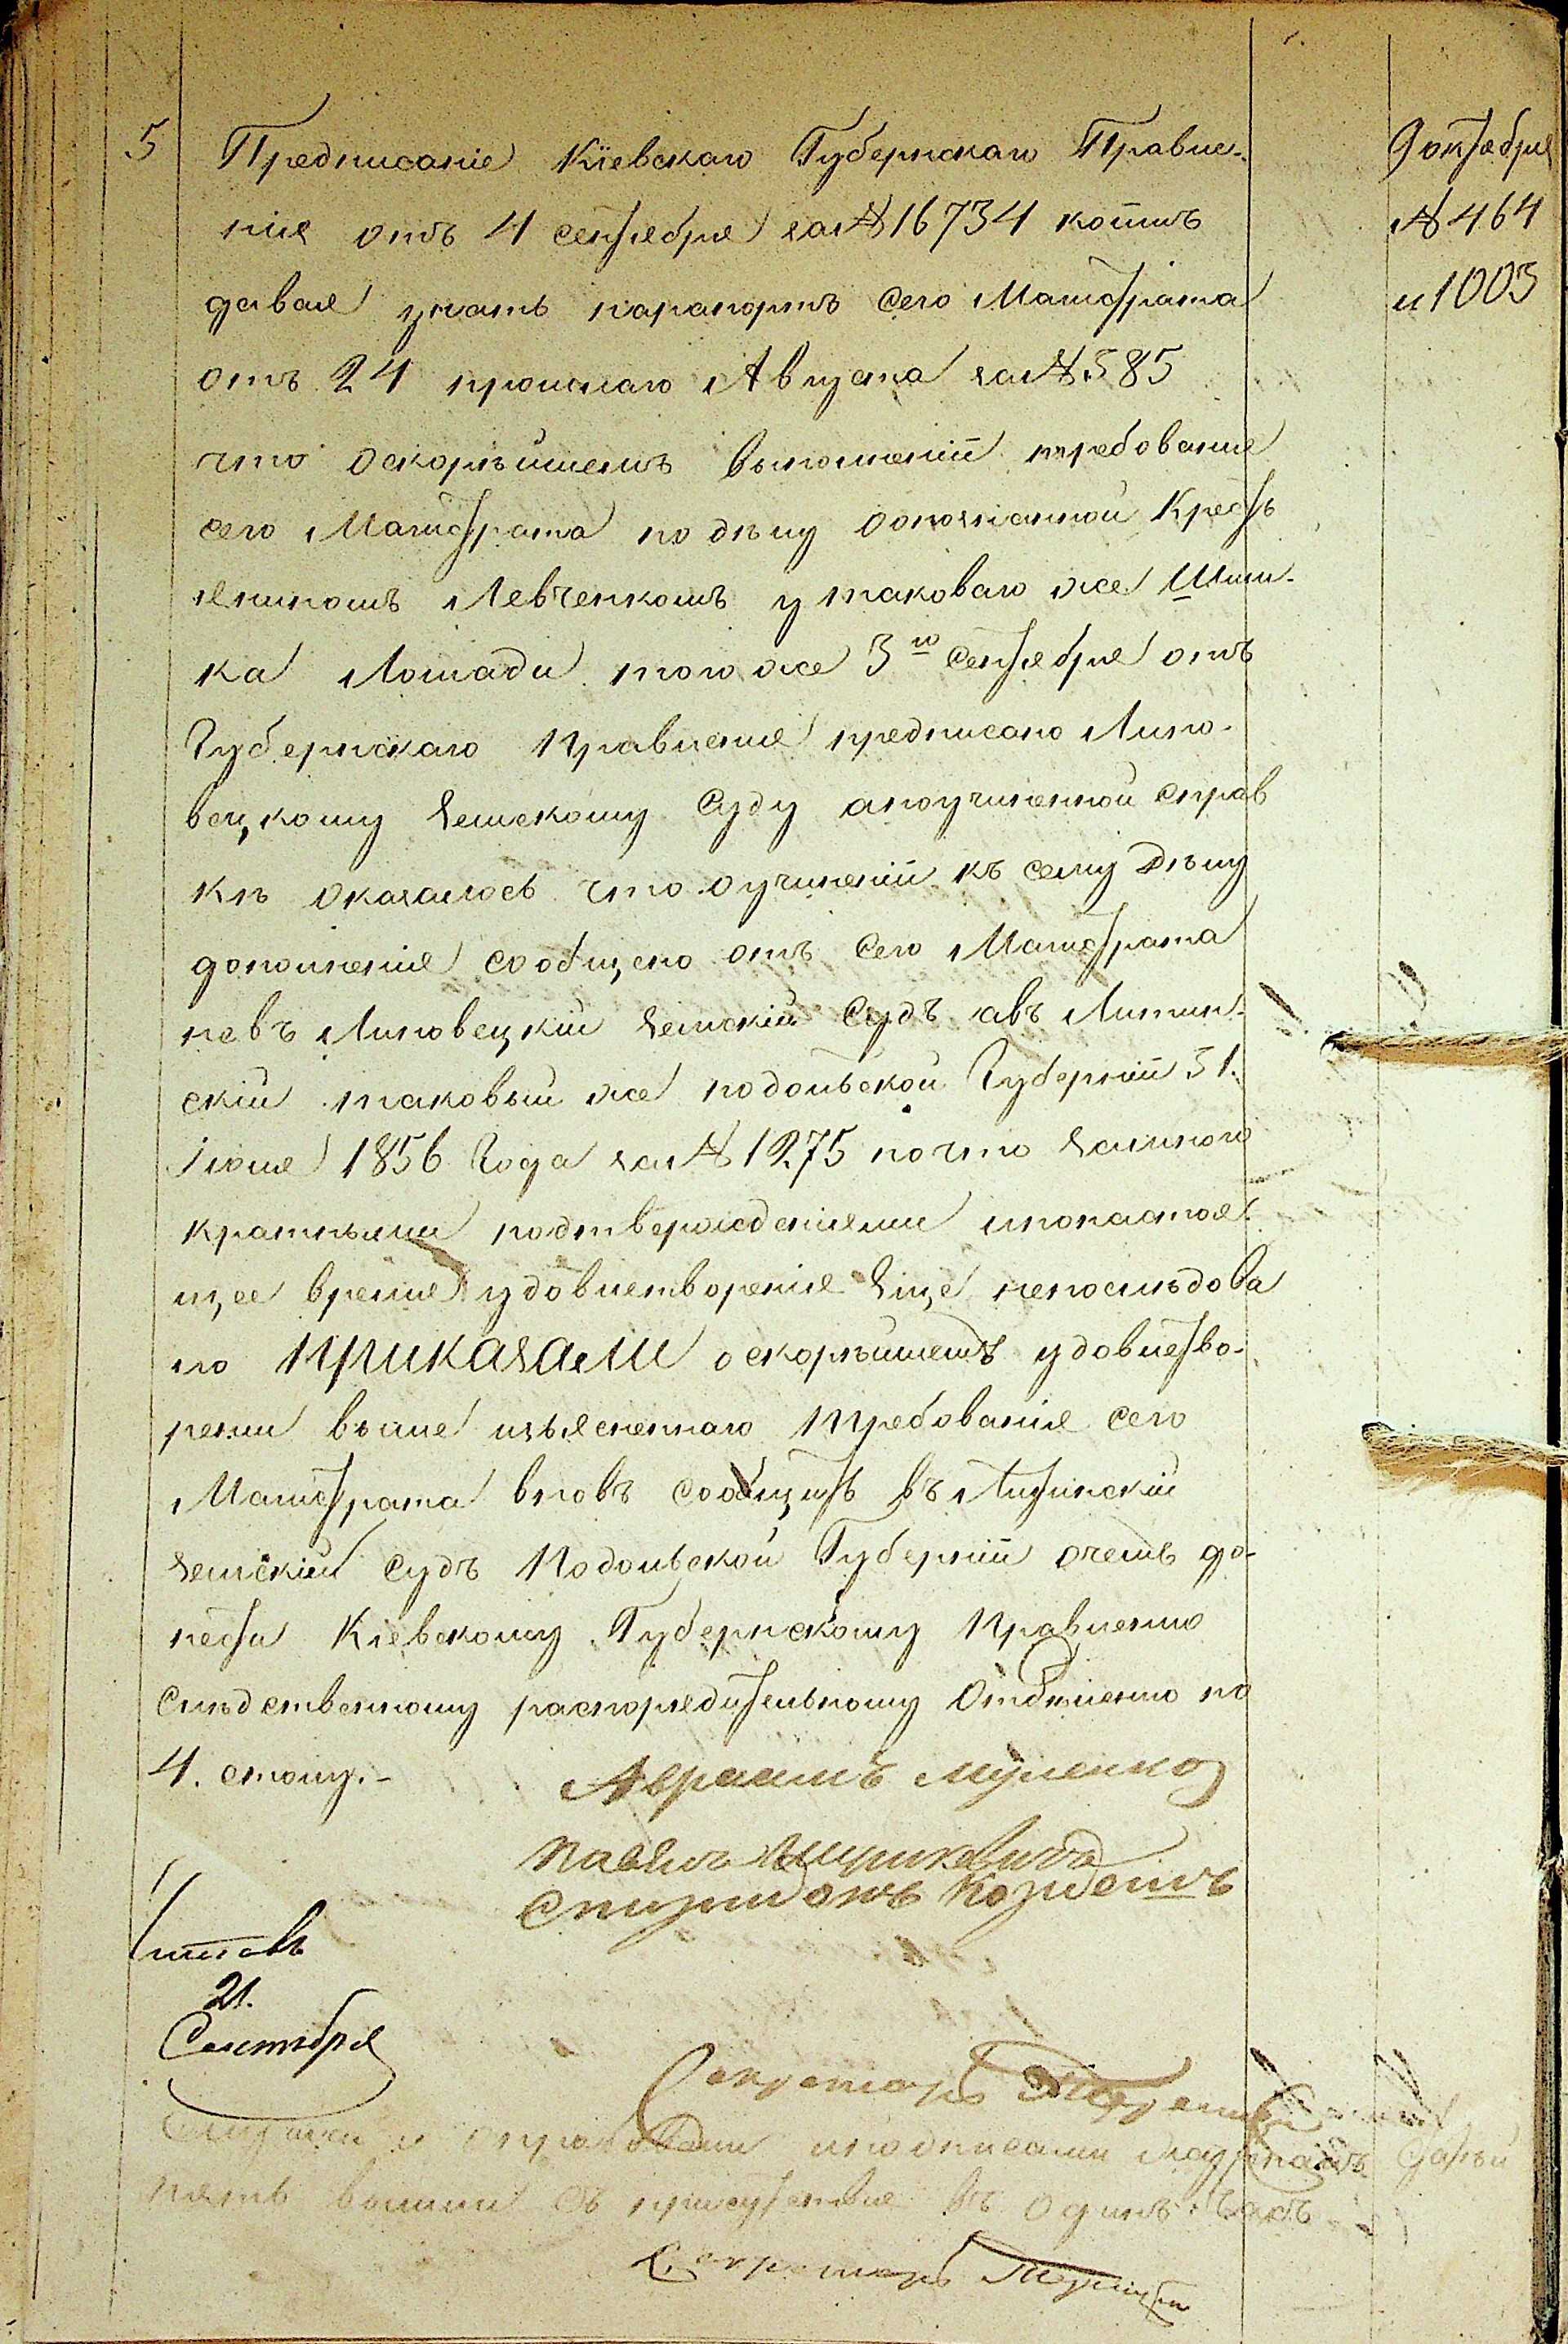 5
Предписаніе Кіевскаго Губернскаго Правле-
нія отъ 4 сентября за № 16734 коимъ
давая знать нарапортъ сего Магистрата
отъ 24 прошлаго Августа за № 585
что оскорѣйшемъ выполненіи требованія
сего Магистрата по дѣлу Крестъ
яниномъ Левченкомъ у таковаго же
ка Лошади того же 3го сентября отъ
Губернскаго Правленія предписано Липо-
вецкому Земскому Суду апоучиненной справ
кѣ оказалось что оучиненіи къ сему дѣлу
дополненія сообщено отъ Сего Магистрата
невъ Липовецкій Земскій Судъ авъ Литин-
скій таковый же подольской Губерніи 31.
Іюля 1856 Года за № 1275 но что замного
кратными подтвержденіями инонастоя
щее время удовлетворенія Еще непослѣдова
ло приказали оскорѣйшемъ удовлетво-
реніи выше изъясненнаго требованія сего
Магистрата вновь сообщить въ Литинскій
Земскій судъ Подольской Губерніи очемъ до-
нести Кіевскому Губернскому Правленію
Слѣдственному распорядительному Отдѣленію по
4. столу.-
9 октября
№ 464
и 1003
Авраамъ
Павелъ
Спиридонъ
21.
Сентября
Секретарь
Слушали и справовали иподписали
пять вышли съ присутствія въ одинъ часъ
Секретарь